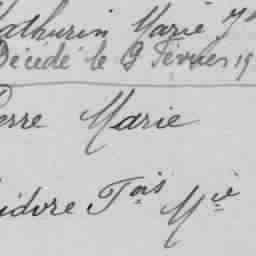 Mathurin Marie
Décédé le 9 Février 19
erre Marie
idore Fois Mie